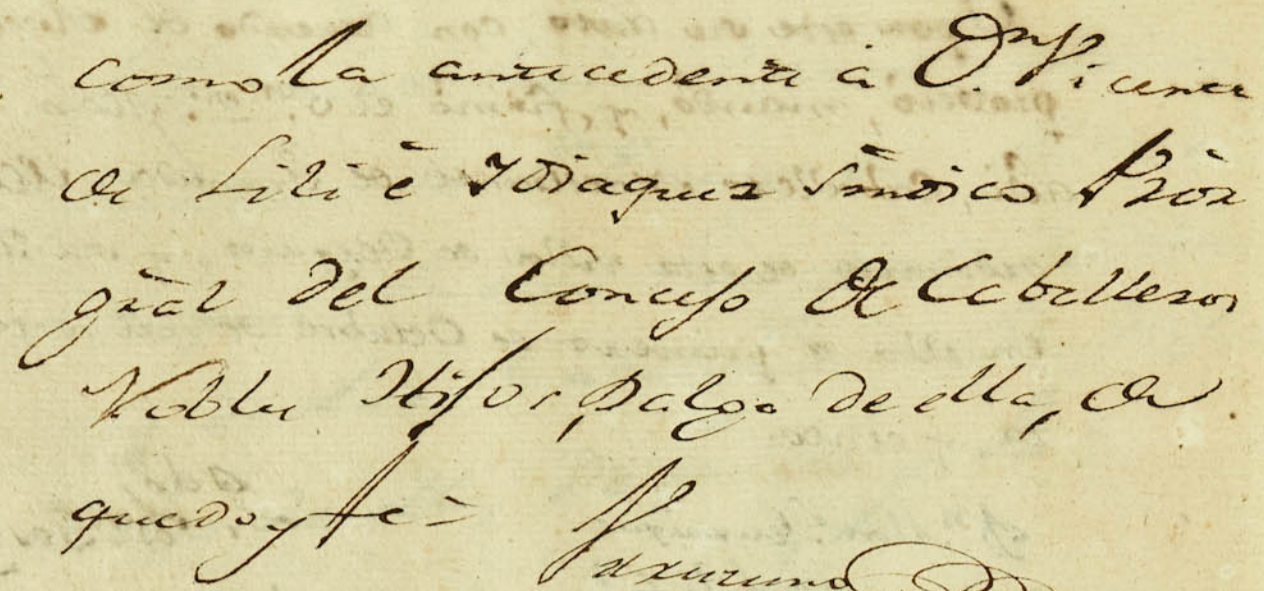 como la antecedente à Dn Vicente
de Lili è Ydiaquez Sindico Pròr
gràl del Concejo de Caballeros
Nobles Hijos Dalgo de ella, de
que doy fe =